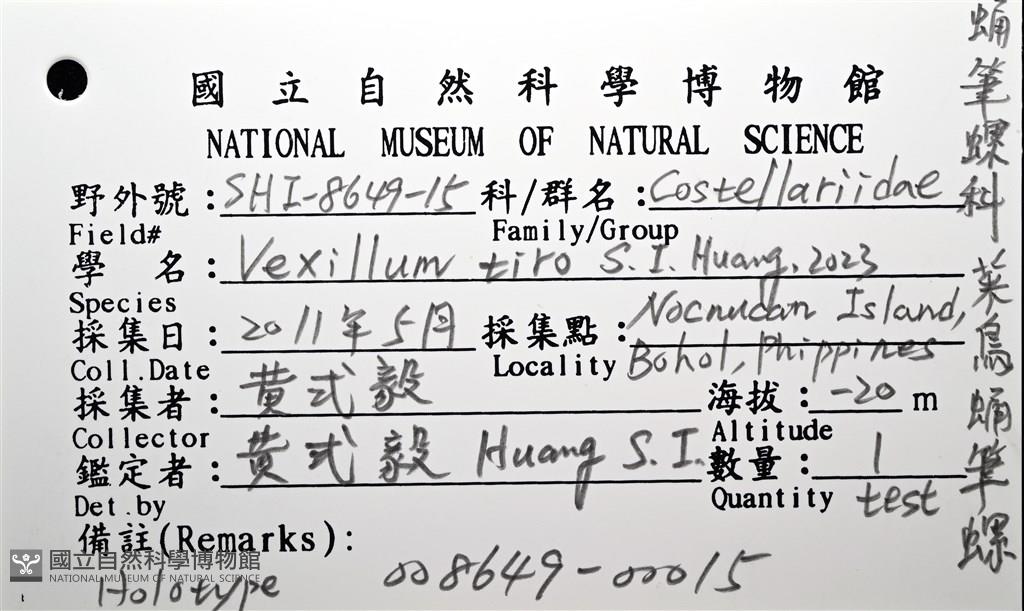 國立自然科學博物館
NATIONAL MUSEUM OF NATURAL SCIENCE
野外號:SHI-8649-15 科/群名:Costellariidae
Field# Family/Group
學 名:Vexillum tiro S.I. Huang, 2023
Species
採集日:2011年5月 採集點:Nocnucan Island,
Bohol, Phippines
Coll.Date Locality
採集者:黃式毅 海拔:-20 m
Collector Altitude
鑑定者:黃式毅 Huang S.I. 數量:1
Det.by Quantity test
備註(Remarks):
Holotype 008649-00015
蛹筆螺科 菜鳥蛹筆螺
國立自然科學博物館
NATIONAL MUSEUM OF NATURAL SCIENCE